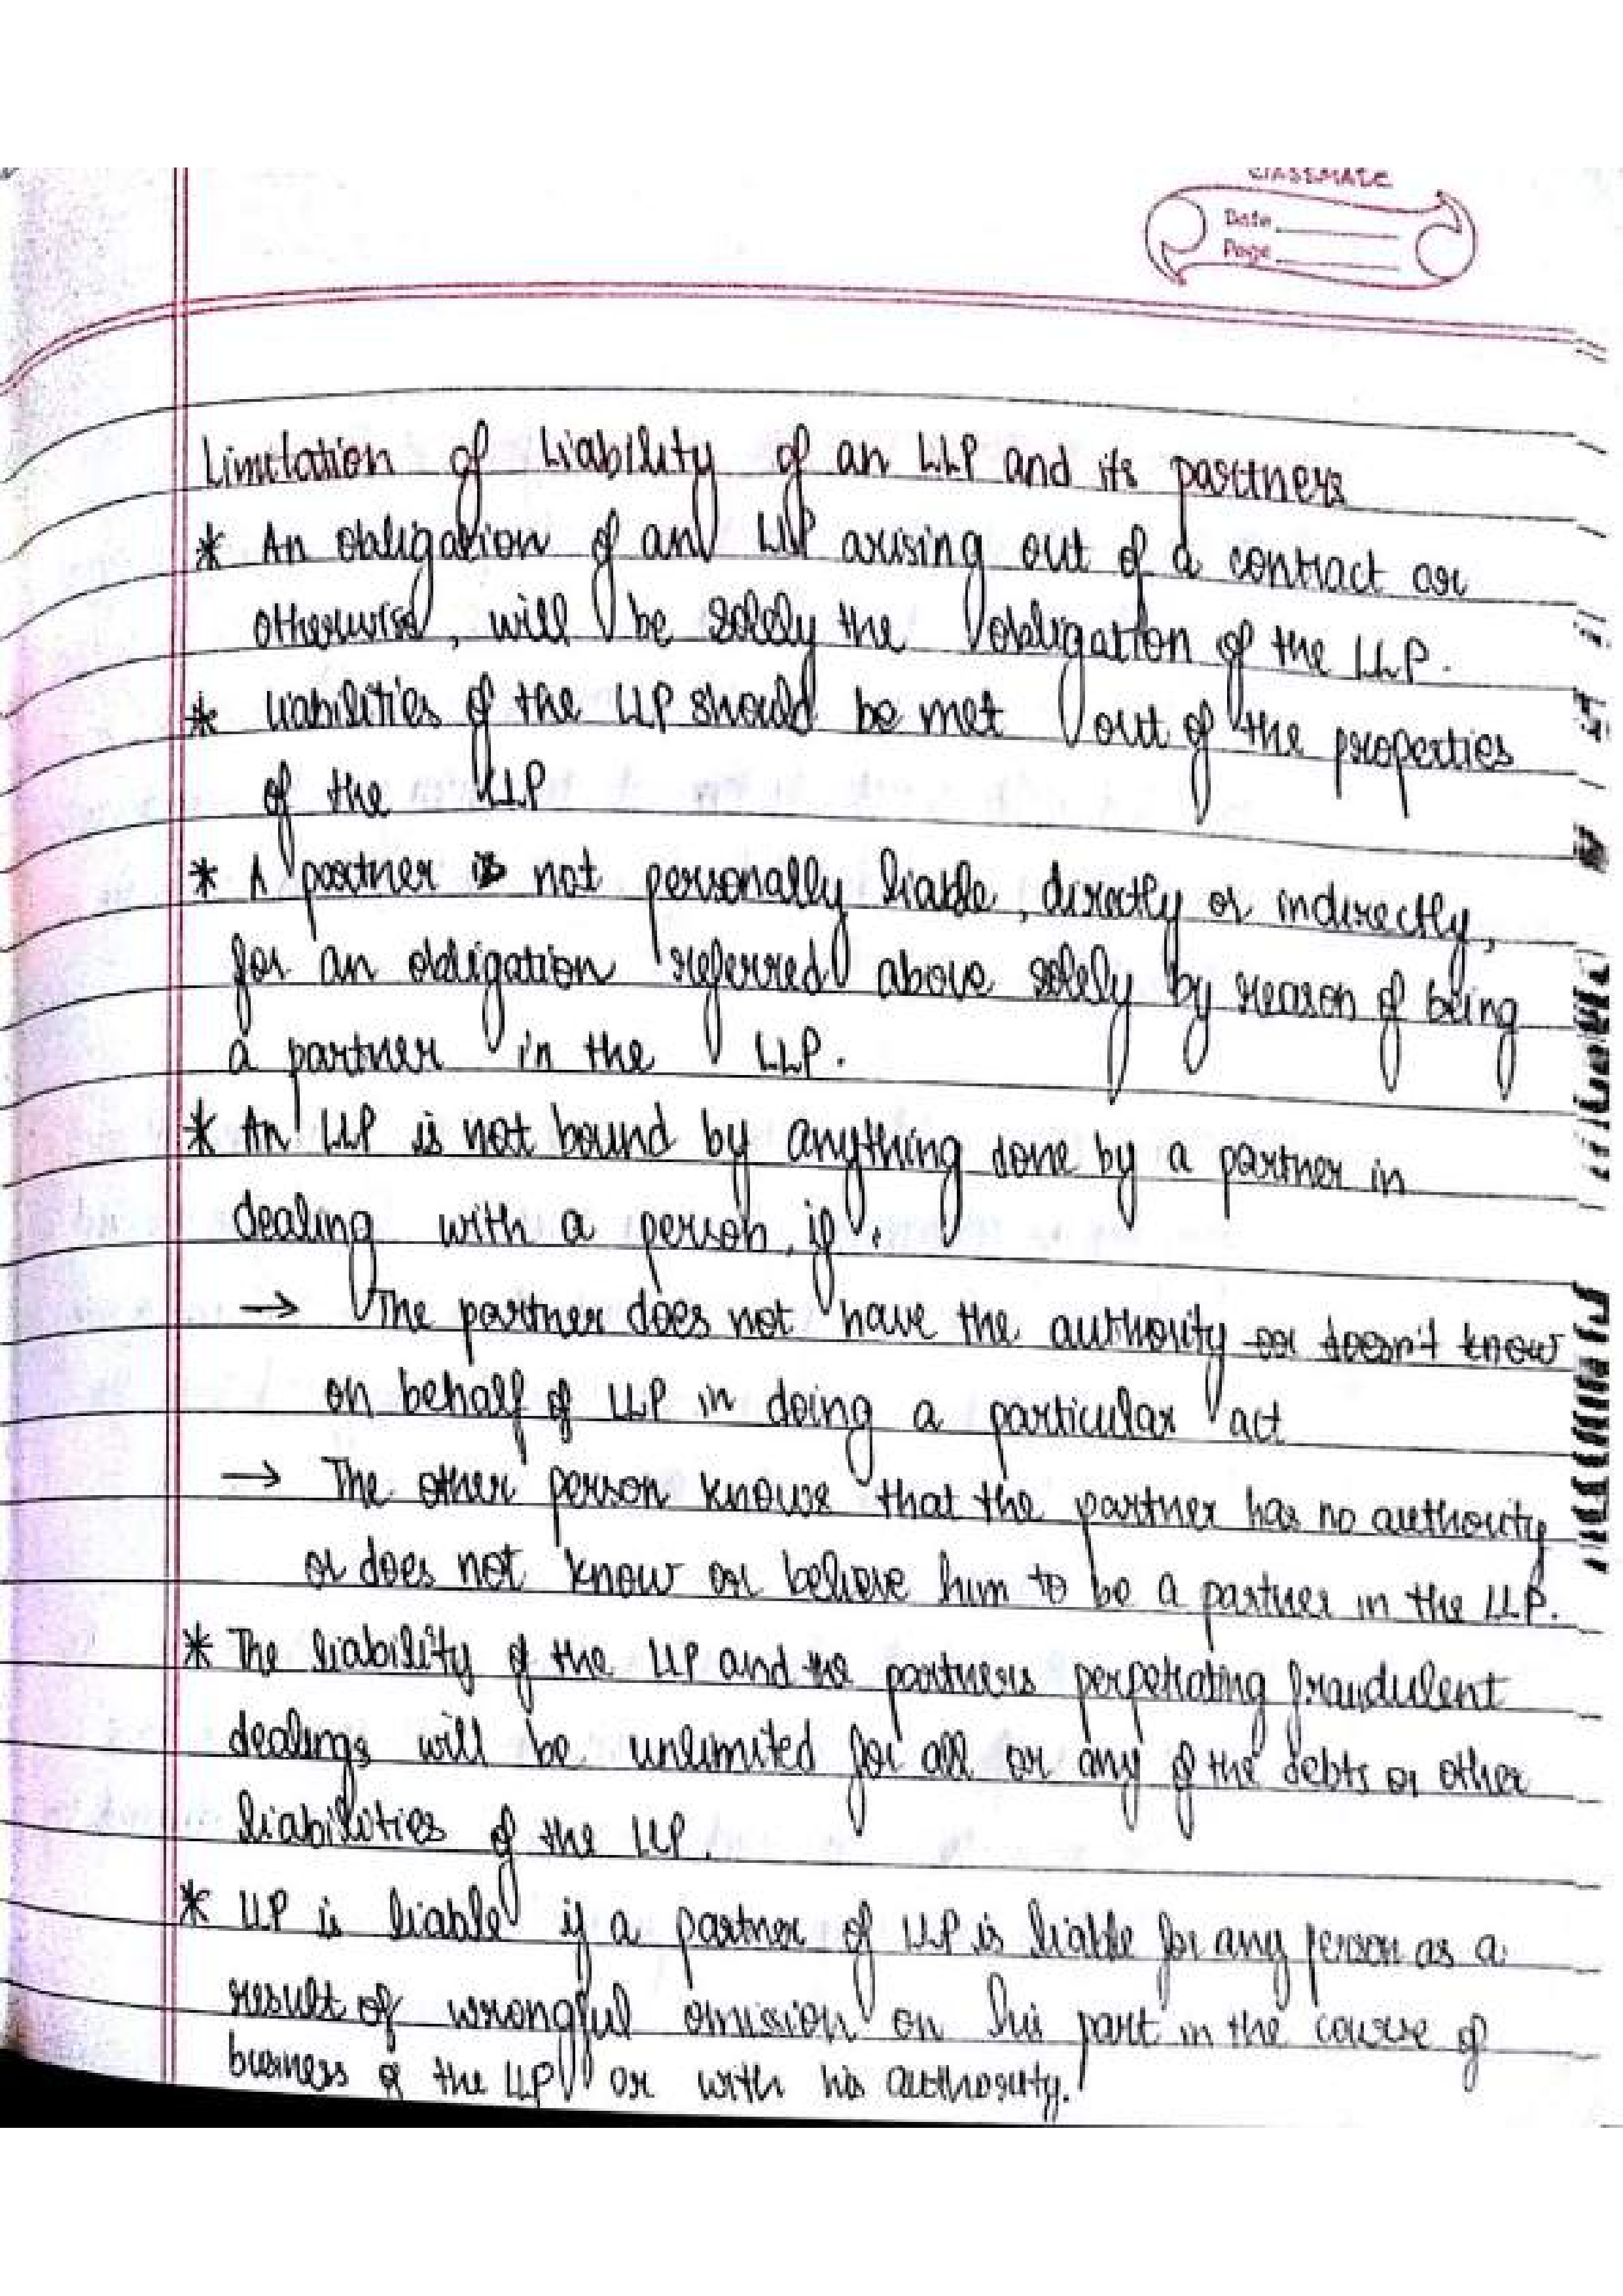 CLASSMATE
Date
Page
Limitation of Liability of an LLP and its partners
* An obligation of an LLP arising out of a contract or
otherwise, will be solely the obligation of the LLP.
* Liabilities of the LLP should be met out of the properties
of the LLP
* A partner is not personally liable, directly or indirectly,
for an obligation referred above solely by reason of being
a partner in the LLP.
* An LLP is not bound by anything done by a partner in
dealing with a person, if:
→ The partner does not have the authority or doesn't know
on behalf of LLP in doing a particular act
→ The other person knows that the partner has no authority
or does not know or believe him to be a partner in the LLP.
* The liability of the LLP and the partners perpetrating fraudulent
dealings will be unlimited for all or any of the debts or other
liabilities of the LLP.
* LLP is liable if a partner of LLP is liable for any person as a
result of wrongful omission on his part in the course of
business of the LLP or with his authority.